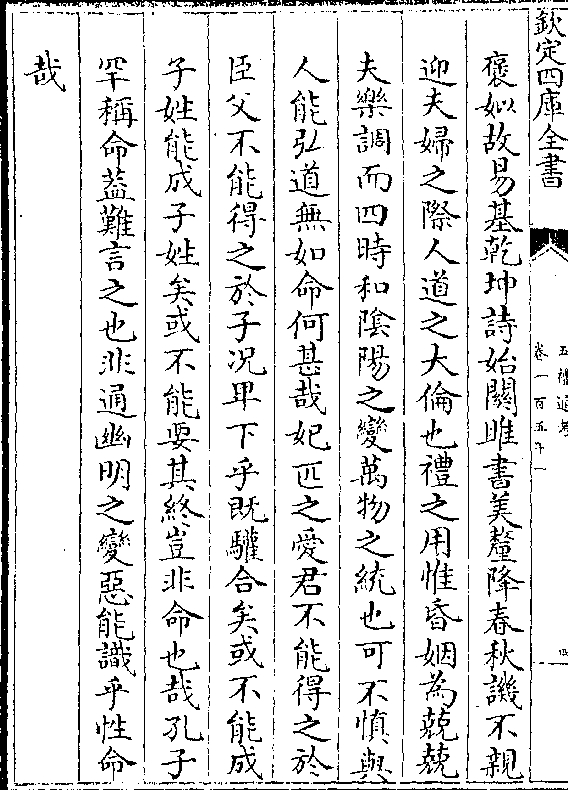 欽定四庫全書
五禮通考
卷一百五十一
四
褒姒故易基乾坤詩始關雎書美釐降春秋譏不親
迎夫婦之際人道之大倫也禮之用惟昏姻為兢兢
夫樂調而四時和陰陽之變萬物之統也可不慎與
人能弘道無如命何甚哉妃匹之愛君不能得之於
臣父不能得之於子况卑下乎既驩合矣或不能成
子姓能成子姓矣或不能要其終豈非命也哉孔子
罕稱命葢難言之也非通幽明之變惡能識乎性命
哉